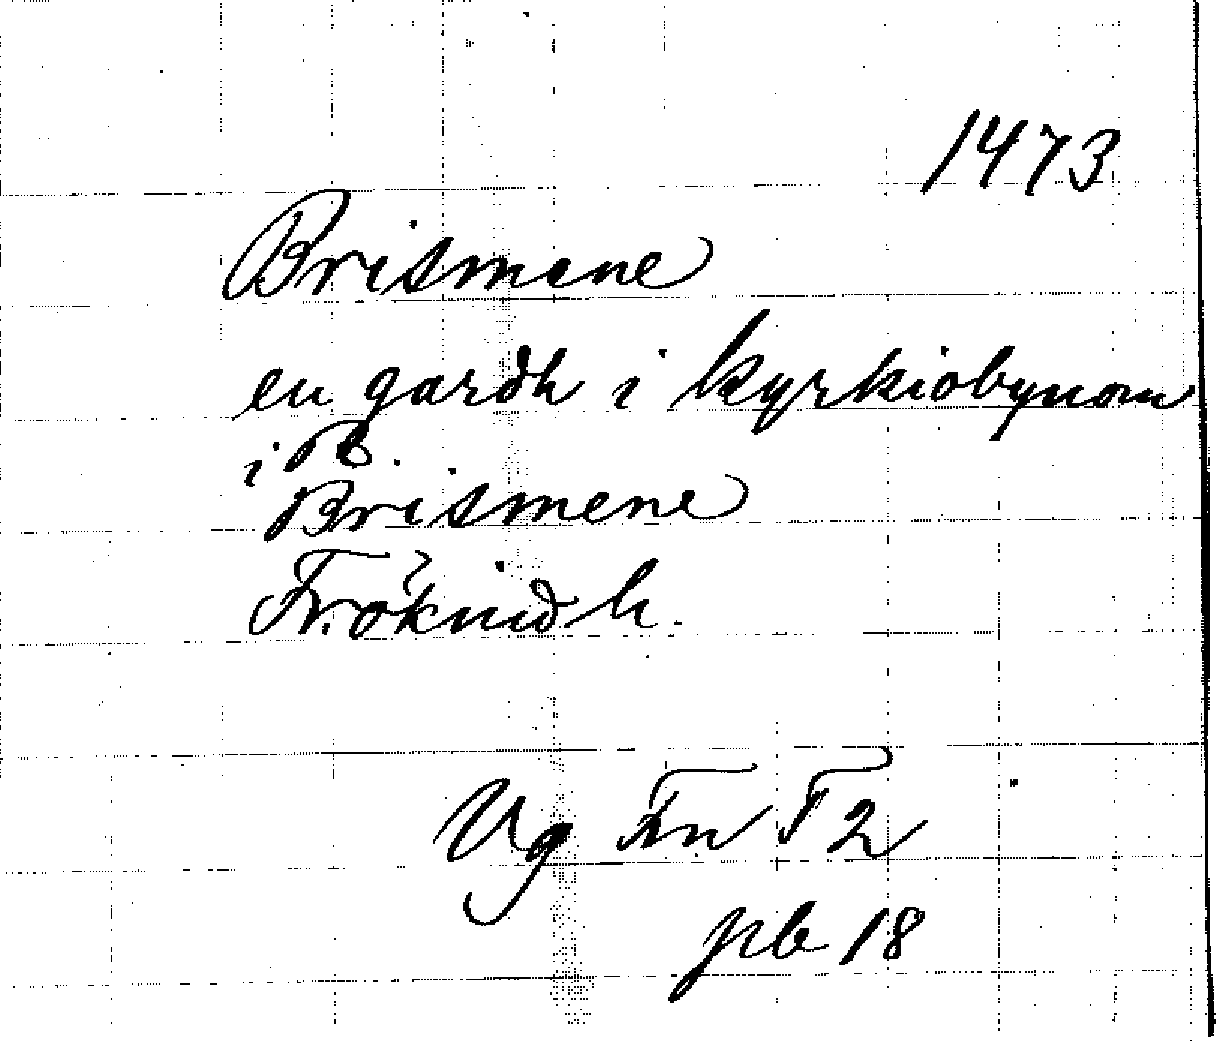 1473
Brismene
en gardh i kyrkiobynom
i B.
Brismene
Frøknidh.
Vg Fn T2
pb 18